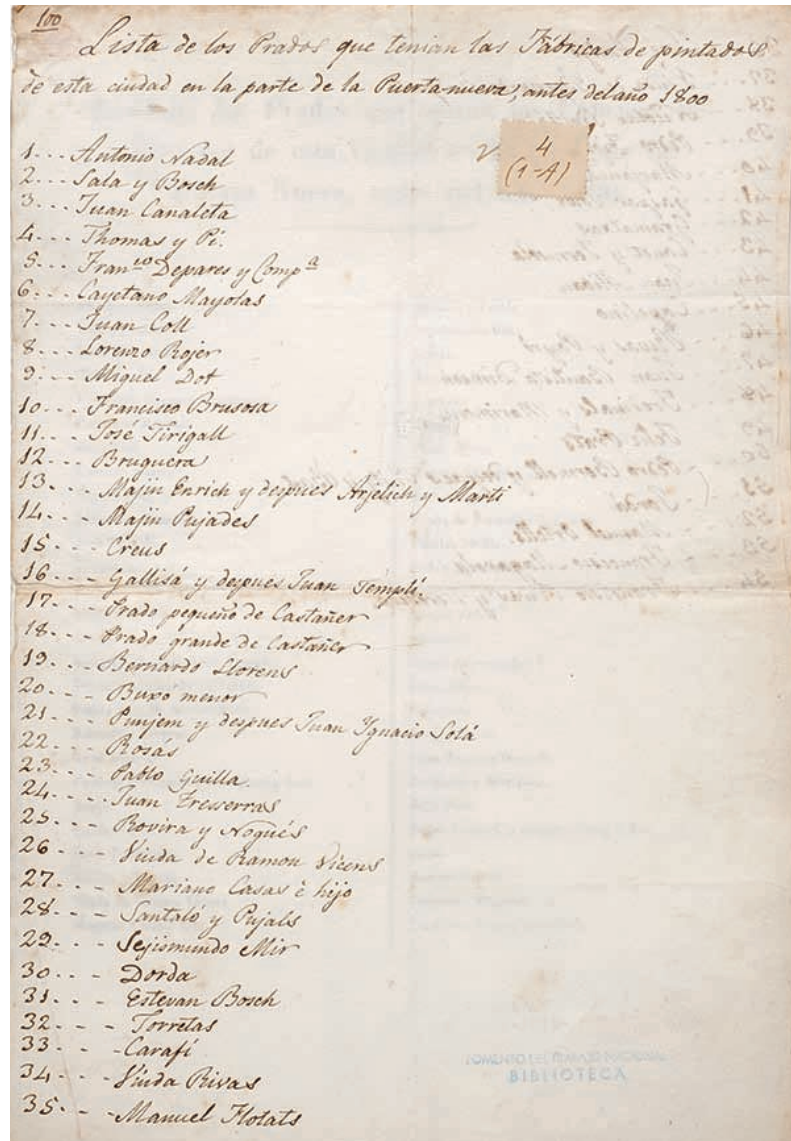 100
Lista de los Prados que tenian las Fábricas de pintados
de esta ciudad en la parte de la Puerta-nueva, antes del año 1800
4
(1-A)
1... Antonio Nadal
2... Sala y Bosch
3... Juan Canaleta
4... Thomas y Pí.
5... Fran.co Depares y Comp.a
6... Cayetano Mayolas
7... Juan Coll
8... Lorenzo Rojer
9... Miguel Dot
10... Francisco Brusosa
11... José Tirigall
12... Bruguera
13... Majin Enrich y despues Arjelich y Marti
14... Majin Pujades
15... Creus
16... Gallisá y despues Juan Templí.
17... Prado pequeño de Castañer
18... Prado grande de Castañer
19... Bernardo Llorens
20... Buxó menor
21... Punjem y despues Juan Ygnacio Solá
22... Rosás
23... Pablo Guilla.
24... Juan Tresserras
25... Rovira y Nogués
26... Viuda de Ramon Vicens
27... Mariano Casas è hijo
28... Santaló y Pujals
29... Sejismundo Mir
30... Dorda
31... Estevan Bosch
32... Torretas
33... Carafí
34... Viuda Rivas
35... Manuel Flotats
FOMENTO DEL TRABAJO NACIONAL
BIBLIOTECA